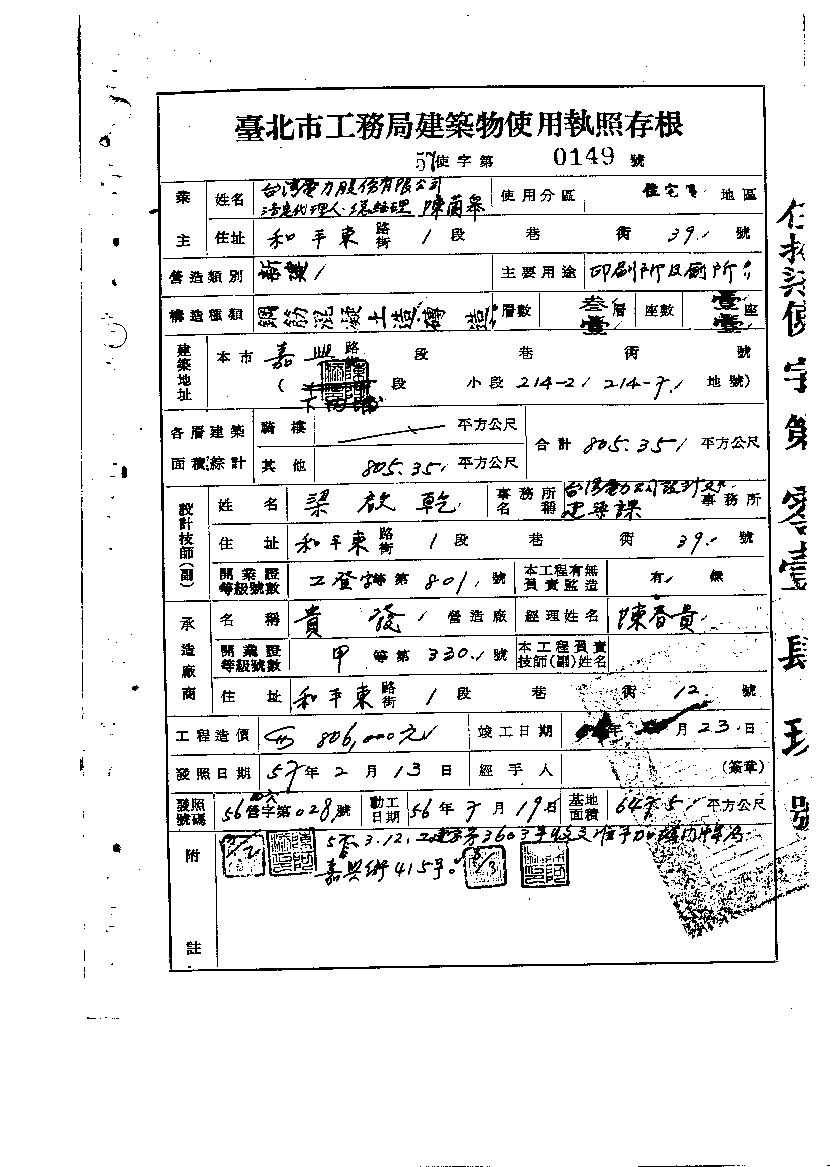 臺北市工務局建築物使用執照存根
57使字第 0149 號
業主 姓名 台湾電力股份有限公司 法定代理人 總經理 陳蘭皋 使用分區 住宅 地區
住址 和平東 路街 1 段 巷 衖 39 號
營造類別 新建 主要用途 印刷所及廁所
構造種類 鋼筋混凝土造 磚造 層數 叁層 壹 座數 壹座 壹
建築地址 本市 嘉興 路 段 巷 衖 號
( 下內埔 段 小段 214-2 214-7 地號)
各層建築面積綜計 騎樓 平方公尺 合計 805.35 平方公尺
其他 805.35 平方公尺
設計技師(副) 姓名 梁啟乾 事務所名稱 台湾電力公司設計処 建築課 事務所
住址 和平東 路街 1 段 巷 衖 39 號
開業證等級號數 工登字等第 801 號 本工程有無負責監造 有 無
承造廠商 名稱 貴發 營造廠 經理姓名 陳春貴
開業證等級號數 甲 等第 330 號 本工程負責技師(副)姓名
住址 和平東 路街 1 段 巷 衖 12 號
工程造價 806,000元 竣工日期 年 月 23 日
發照日期 57 年 2 月 13 日 經手人 (簽章)
發照號碼 56 營字第 028 號 動工日期 56 年 7 月 19 日 基地面積 平方公尺
附註 57. 3. 12. 3603
嘉興街415号。
使字第零壹肆玖號